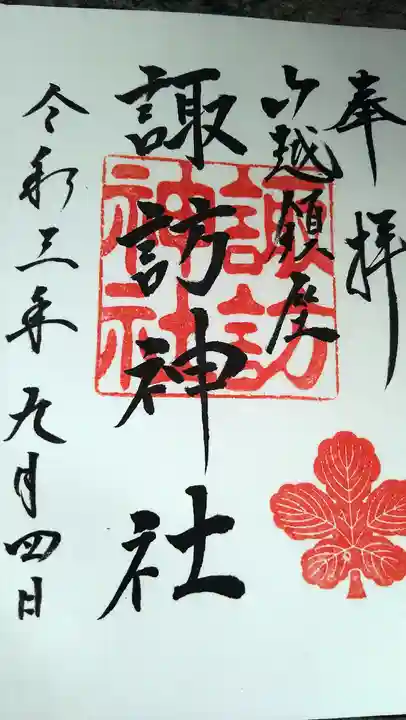 奉拝
山越鎮座
諏訪神社
令和三年九月四日
諏訪
神社